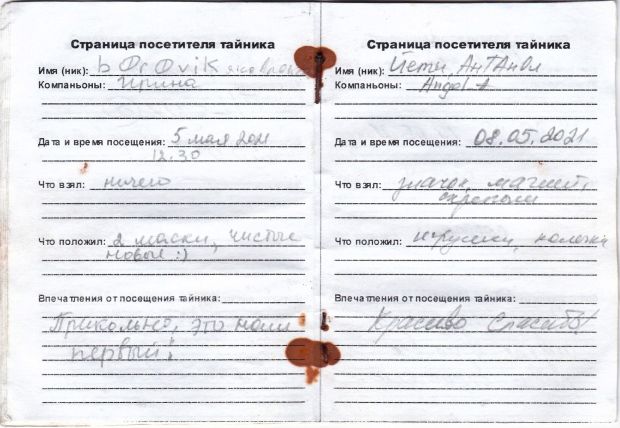 Страница посетителя тайника
Имя (ник): bOrOvik
Компаньоны: Ирина
Дата и время посещения: 5 мая 2021
12.30
Что взял: ничего
Что положил: 2 маски, чистые
новые :)
Впечатления от посещения тайника:
Прикольно, это наш
первый!
Страница посетителя тайника
Имя (ник): Йети,
Компаньоны:
Дата и время посещения: 08.05.2021
Что взял: значок, магнит,
Что положил: игрушки, колечки
Впечатления от посещения тайника:
Красиво Спасибо!